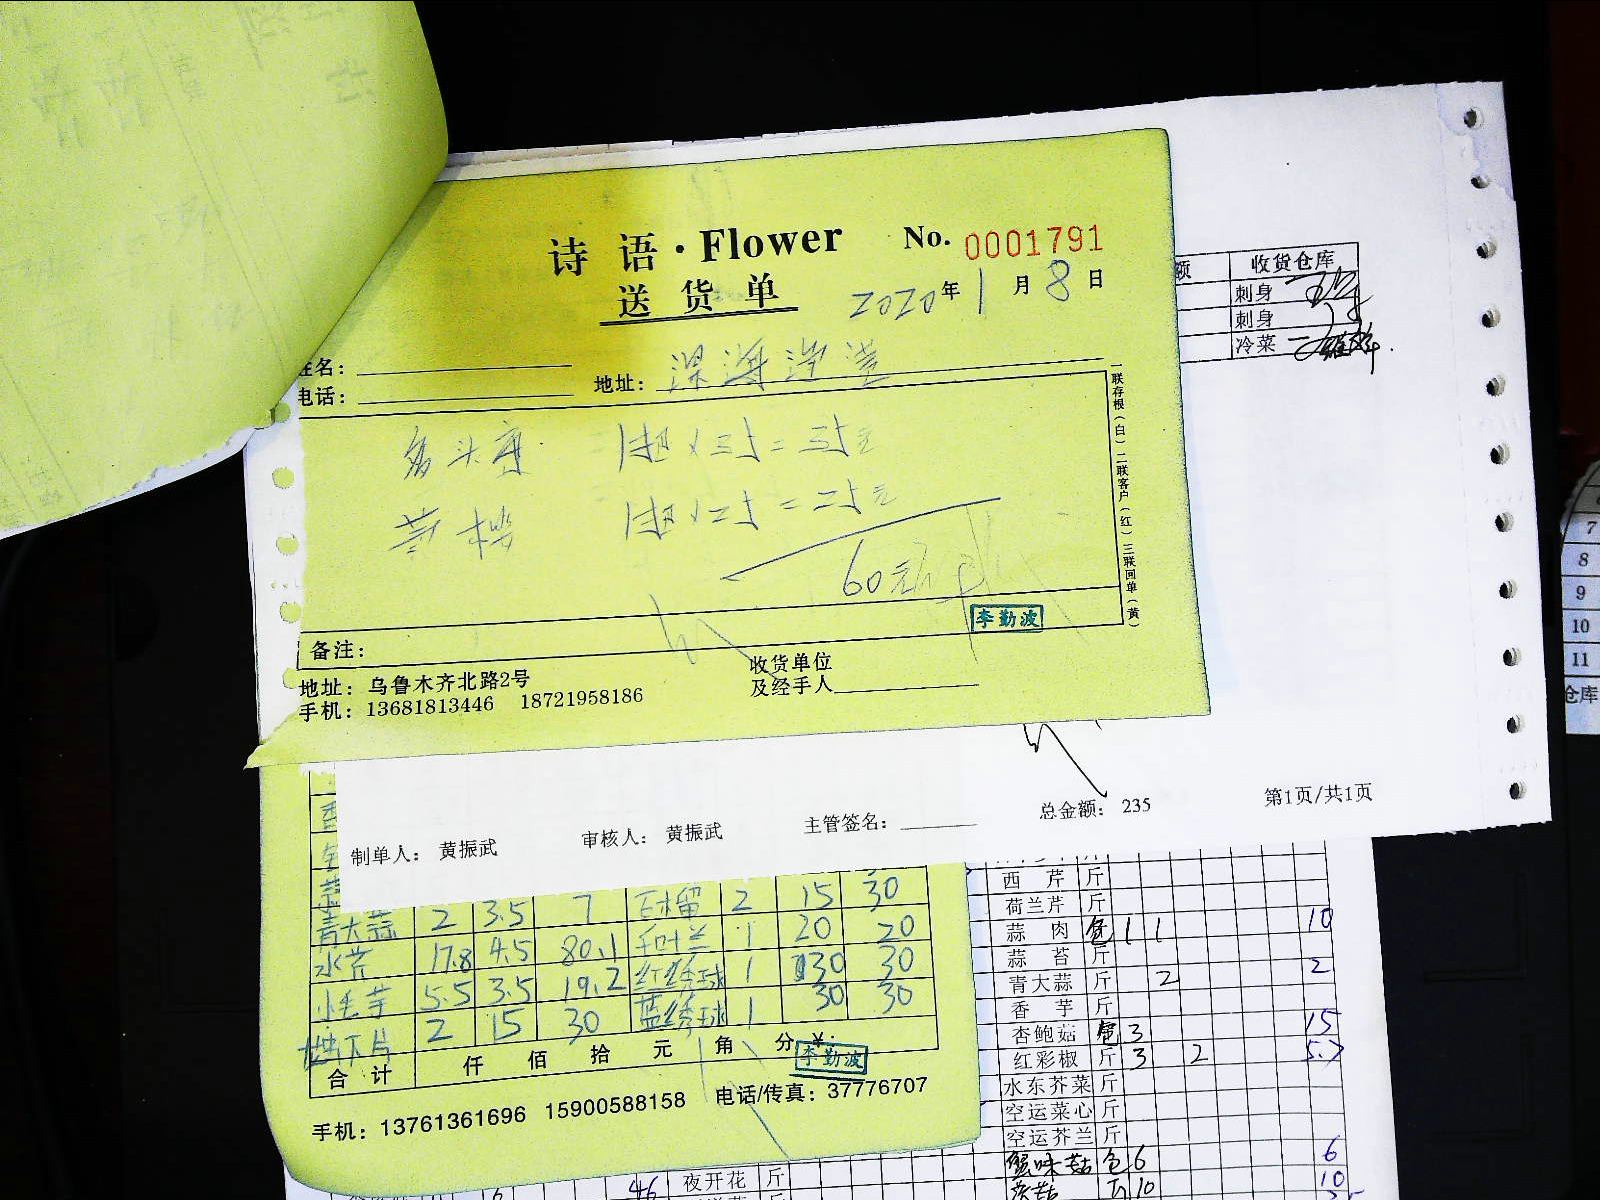 诗 语·Flower No. 0001791
送 货 单 2020年1月8日
姓名：
电话： 地址：
多头 1扎×35=35元
1扎×25=25元
60元
李勤波
备注：
地址：乌鲁木齐北路2号
手机：13681813446 18721958186
收货单位
及经手人
一联存根（白）二联客户（红）三联回单（黄）
额 收货仓库
刺身
刺身
冷菜
制单人： 黄振武 审核人： 黄振武 主管签名： 总金额： 235 第1页/共1页
2 15 30
青大蒜 2 3.5 7 千叶兰 1 20 20
水芹 17.8 4.5 80.1 红绣球 1 30 30
小毛芋 5.5 3.5 19.2 蓝绣球 1 30 30
地下片 2 15 30
合 计 仟 佰 拾 元 角 分 ¥：
李勤波
手机：13761361696 15900588158 电话/传真：37776707
西 芹 斤
荷兰芹 斤
蒜 肉 包 1 1 10
蒜 苔 斤
青大蒜 斤 2 2
香 芋 斤
杏鲍菇 包 3 15
红彩椒 斤 3 2 5.7
水东芥菜 斤
空运菜心 斤
空运芥兰 斤
蟹味菇 包 6 6
10 10
46 夜开花 斤
7
8
9
10
11
仓库